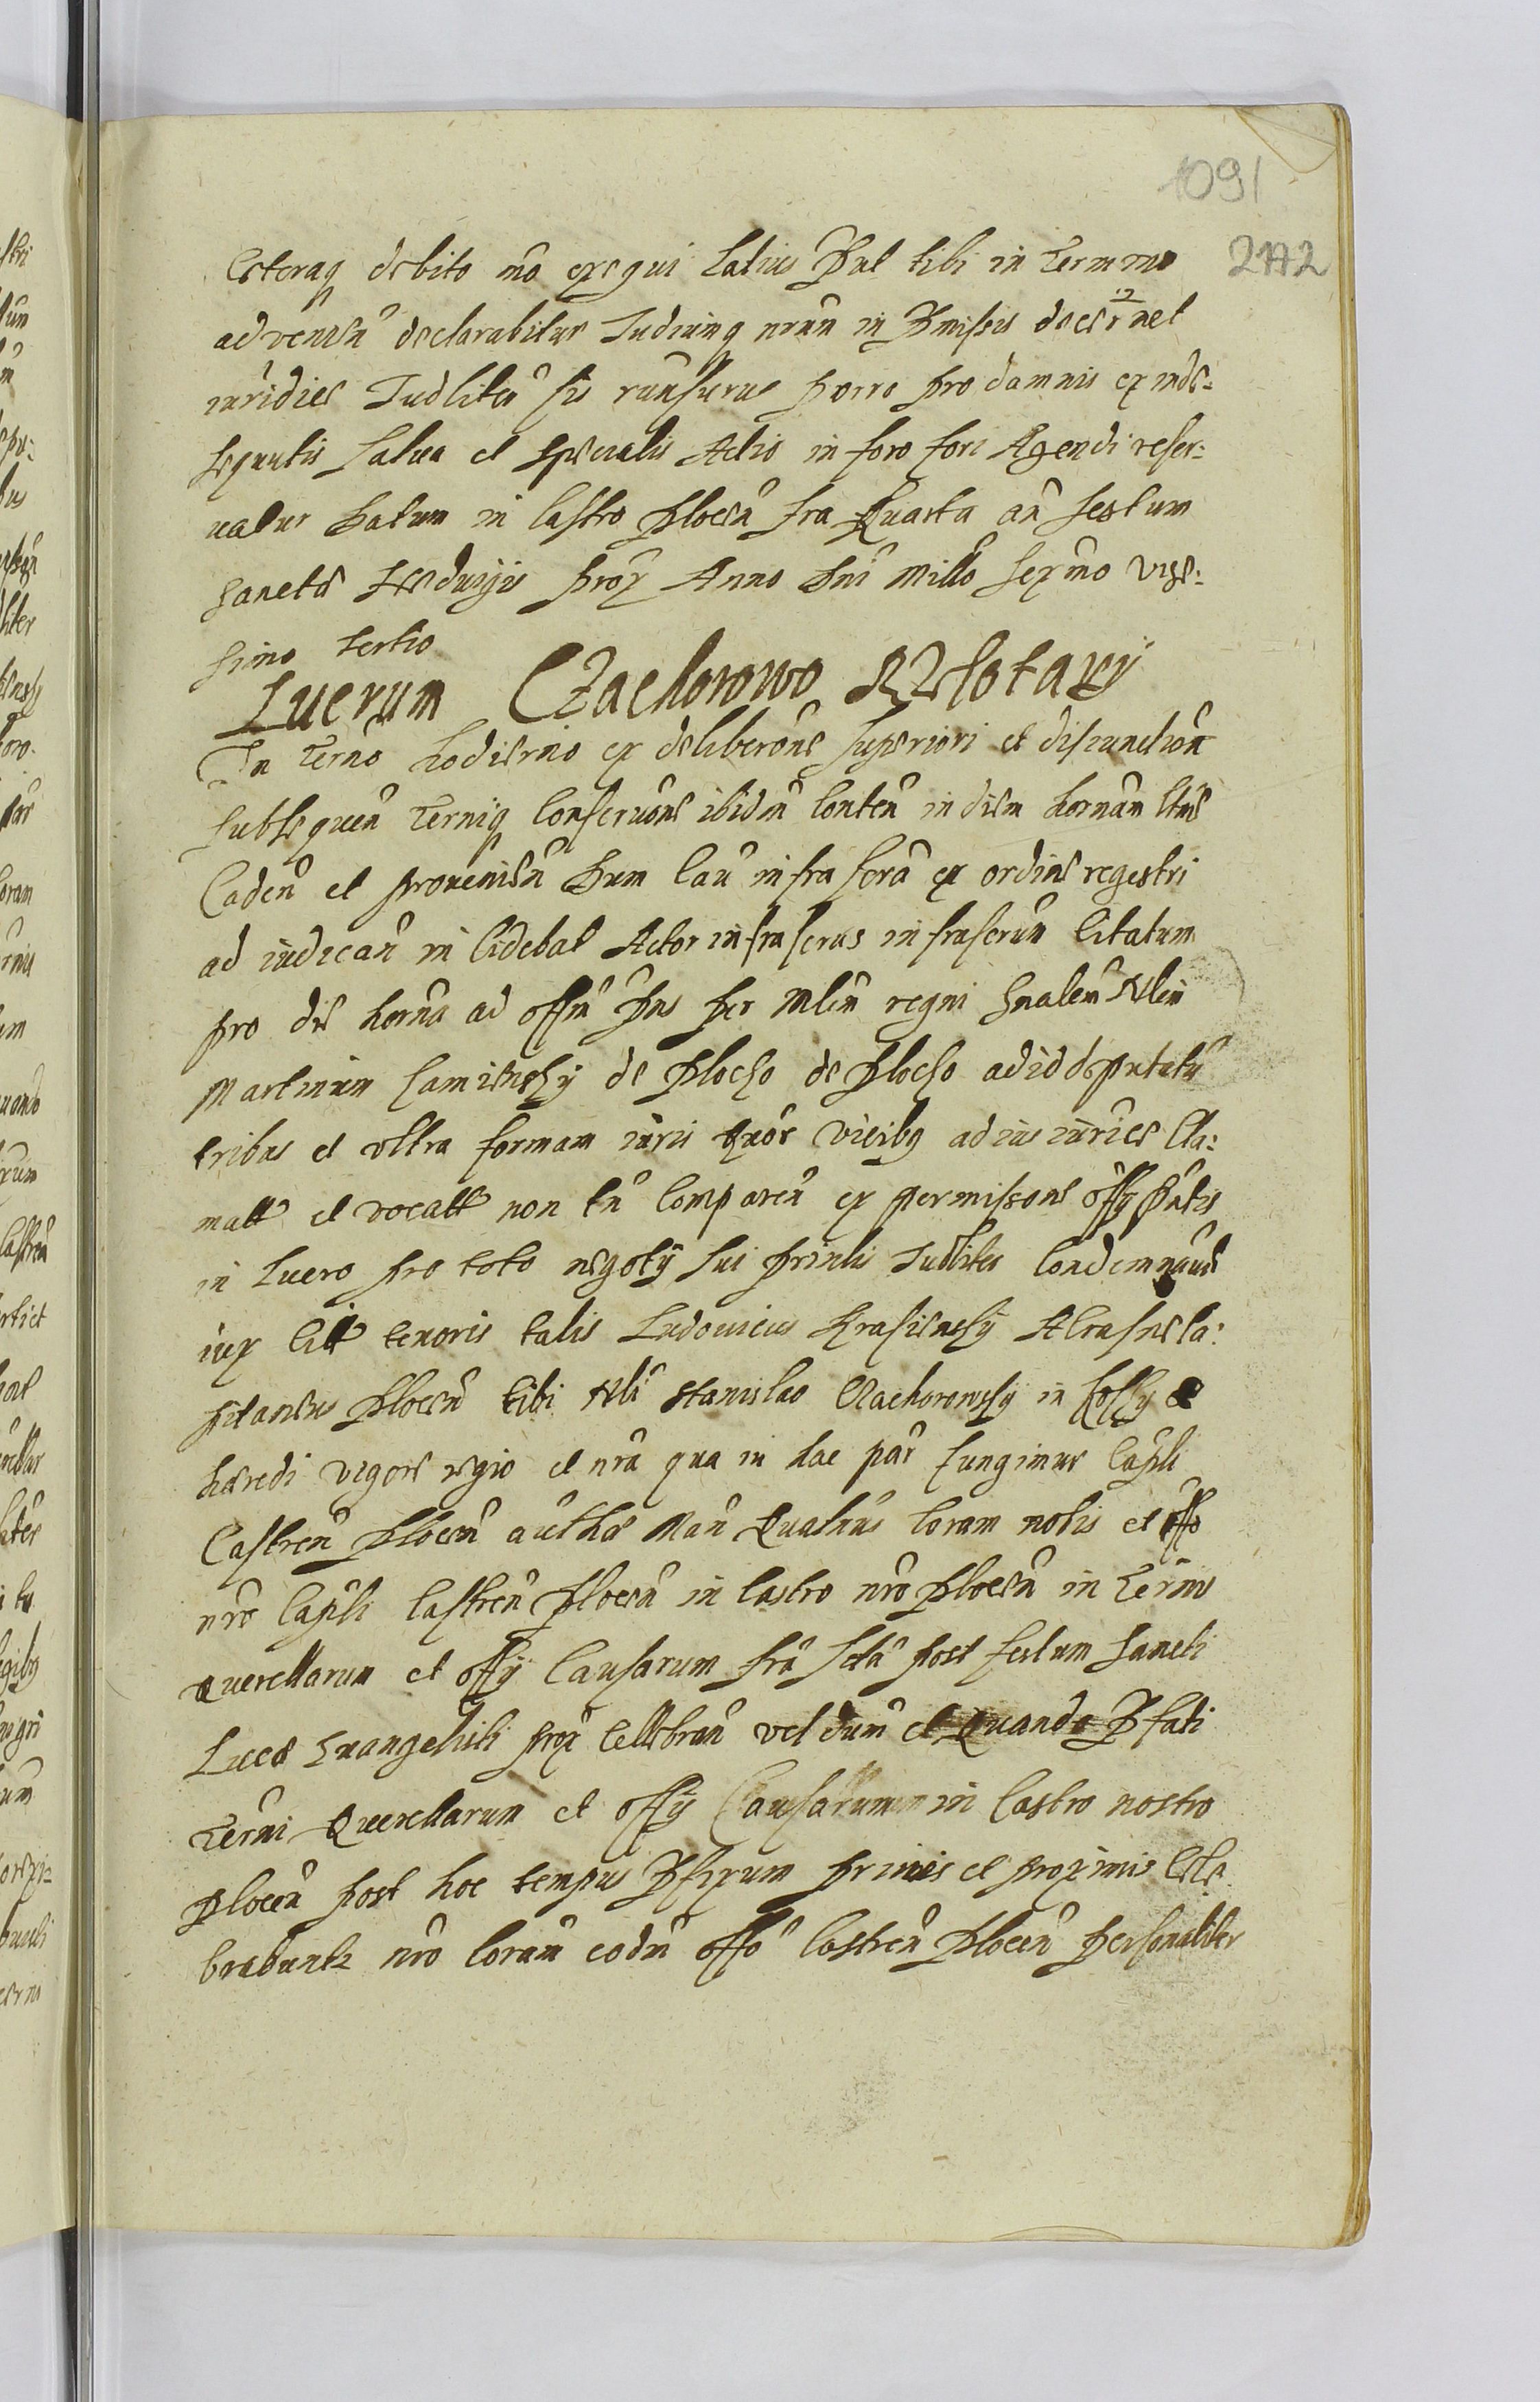 1091
2772
Ceteraq debito mo exequi latius Put tibi in Termino
ad venien declarabitur Judiumq nrum in Pmissis decernet
iuridice Judliter sis runsurus porro pro damnis ex inde-
sequutis salua et specialis Actio in foro fori Agendi reser-
uatur Datum in Castro Plocen fra Quarta an festum
Sanctæ Heduigis prox Anno Dni Millo sexmo vige-
simo tertio
Lucrum Czachorowo
In Termo hodierno ex deliberone superiori et disiunction
subsequen Terniq conseruone ibidm conten in diem hornam
Caden et prouenien Dum Cau infra scra ex ordine regestri
ad iudican in cidebat Actor infrascrus infrascrum Citatum
pro die horna ad offm Pns per Mlem regni Gnalem Nlem
Martinum Camienski de Plocho de Plocho ad id deputatu
tribus et vltra formam iuris quor vicibq ad ius iurice Cla-
matt et vocatt non tn Comparen ex permissone offy Pntis
in Lucro pro toto negoty sui prinlis Judliter Condemnauit
iux Citt tenoris talis Ludouicus Krasiensky
Plocen tibi Nli Stanislao Czachorowsky in
hæredi vigore regio et nra qua in hac par fungimur Capli
Castren Plocen autha Man Quatnus Coram nobis et offo
nro Capli Castren Plocen in Castro nro Plocen in Termo
Querellarum et offy Causarum fra scda post festum Sancti
Lucæ Euangelisti prox Celebran vel dum et Quando Pfati
Termi Querellarum et offy Causarum in Castro nostro
Plocen post hoc tempus Pfixum primis et proximis Cele-
brabunt nro Coram eodm offo Castren Plocen personaliter